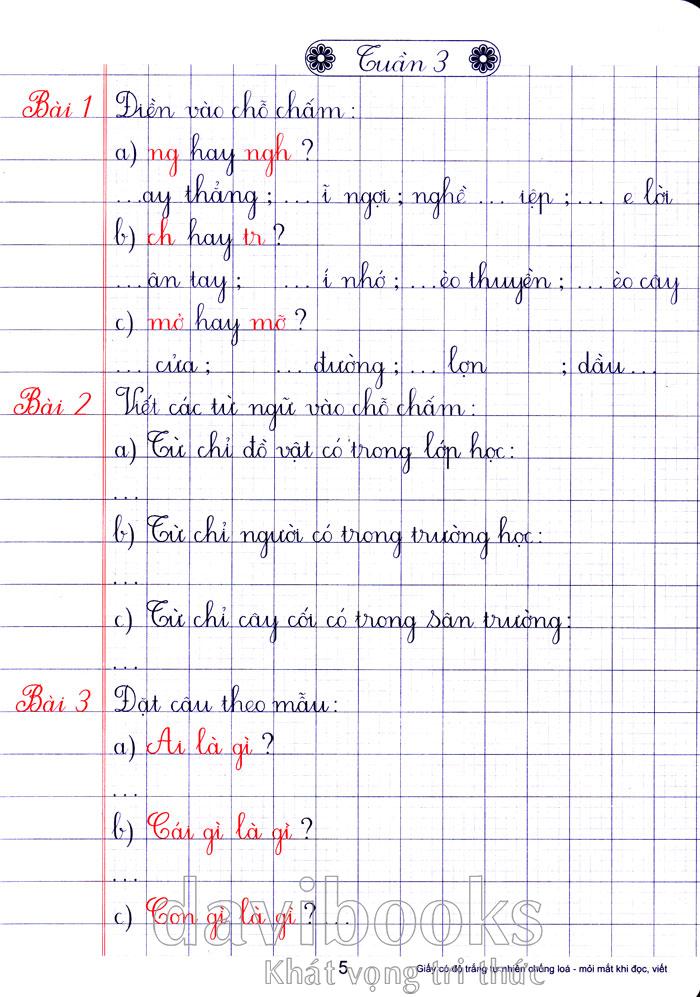 Tuần 3
Bài 1 Điền vào chỗ chấm:
a) ng hay ngh ?
...ay thẳng ; ... ĩ ngợi ; nghề ... iệp ; ... e lời
b) ch hay tr ?
...ân tay ; ... í nhớ ; ...èo thuyền ; ... èo cây
c) mở hay mỡ ?
... cửa ; ... đường ; ... lợn ; dầu ...
Bài 2 Viết các từ ngữ vào chỗ chấm:
a) Từ chỉ đồ vật có trong lớp học:
...
b) Từ chỉ người có trong trường học:
...
c) Từ chỉ cây cối có trong sân trường:
...
Bài 3 Đặt câu theo mẫu:
a) Ai là gì ?
...
b) Cái gì là gì ?
...
c) Con gì là gì ? ...
davibooks
Khát vọng tri thức
5 Giấy có độ trắng tự nhiên chống loá - mỏi mắt khi đọc, viết